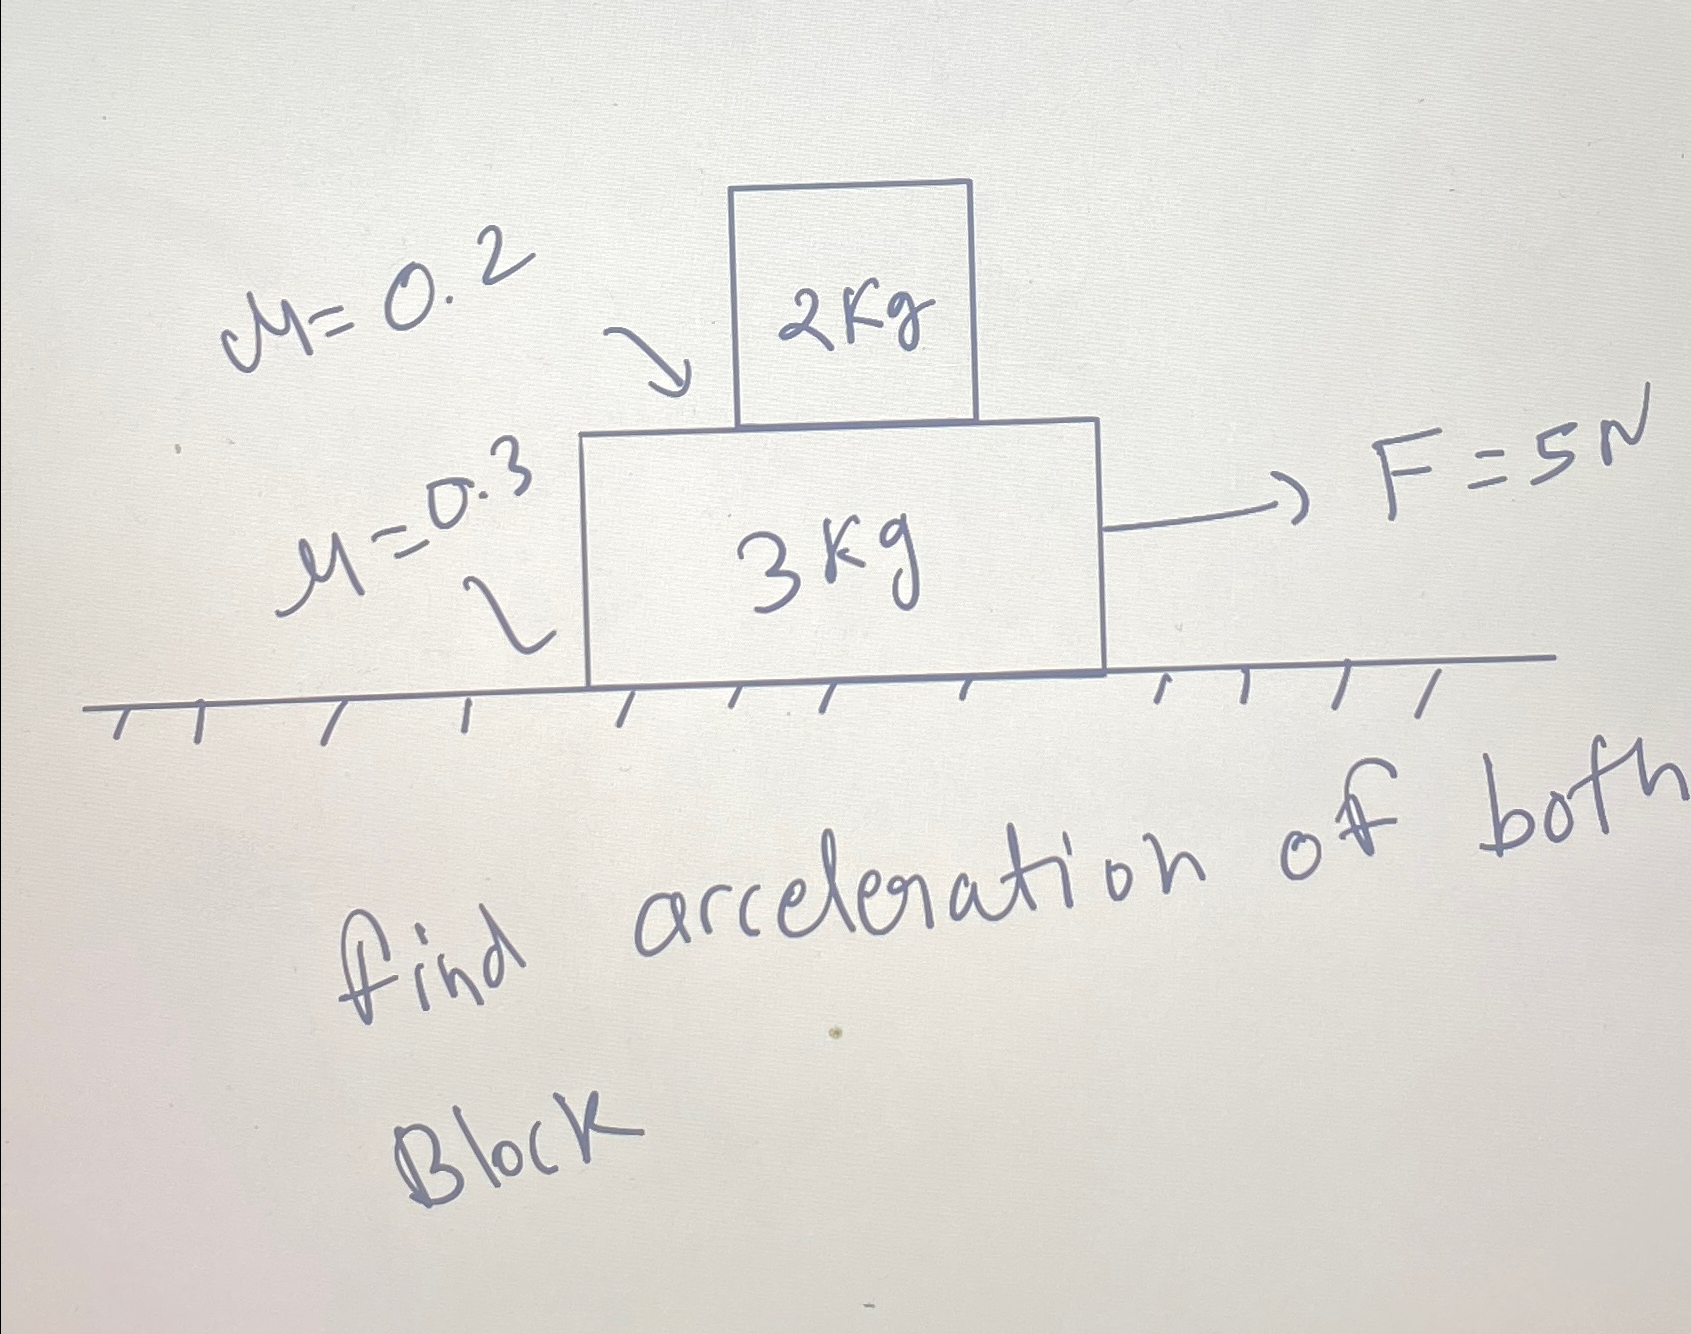 μ = 0.2
2Kg
μ = 0.3
3Kg
F = 5N
find arceleration of both
Block